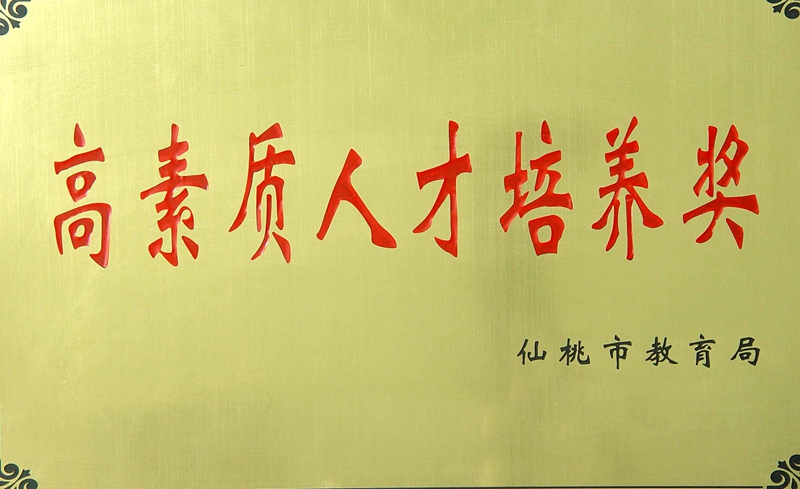 高素质人才培养奖
仙桃市教育局